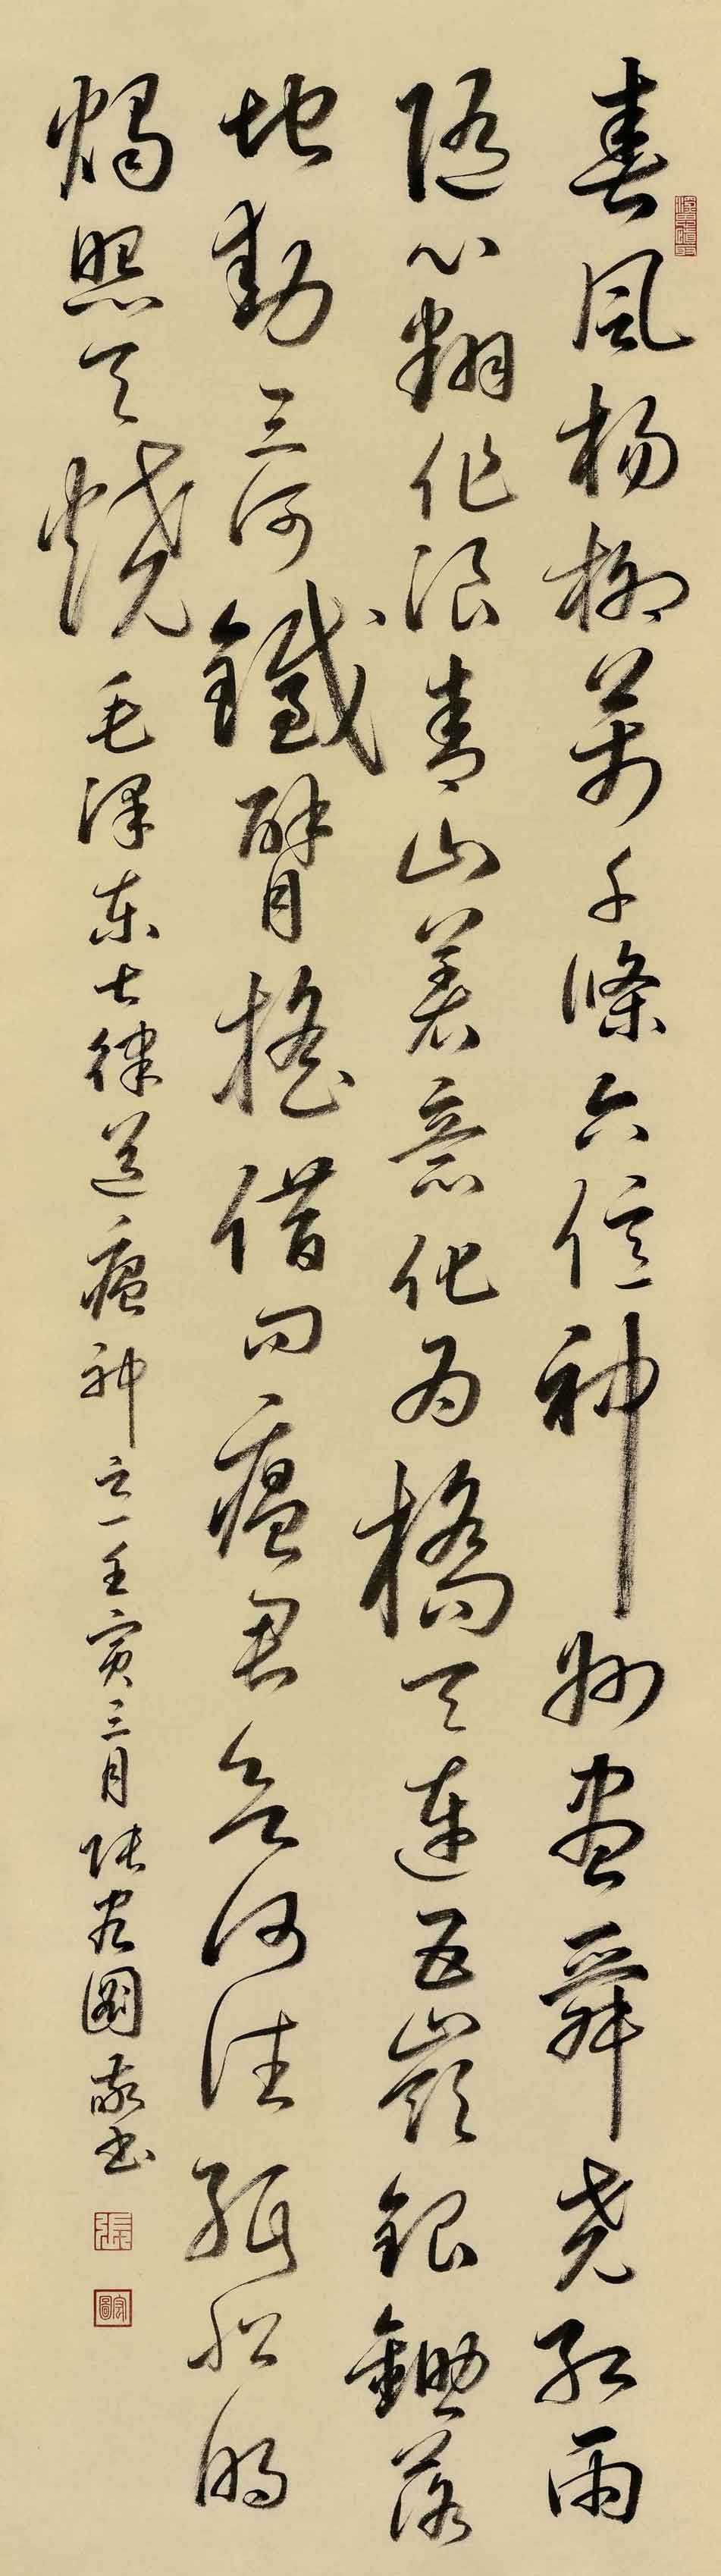 春風楊柳萬千條六億神州盡舜堯紅雨
隨心翻作浪青山著意化為橋天連五嶺銀鋤落
地動三河鐵臂搖借問瘟君欲何往紙船明
燭照天燒 毛澤東七律送瘟神之一壬寅三月張宏圖敬書
張
宏圖